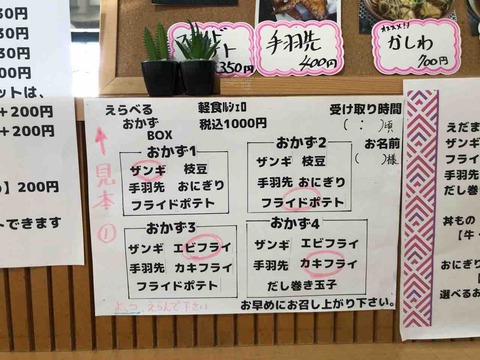 30円
30円
30円
00円
ットは、
+200円
+200円
+200円
】200円
トできます
350円
手羽先
400円
オススメ!!
かしわ
700円
えらべる
おかず
BOX
軽食ルシェロ
税込1000円
受け取り時間
( : )頃
お名前
( )様
見本①
おかず1
ザンギ 枝豆
手羽先 おにぎり
フライドポテト
おかず2
ザンギ 枝豆
手羽先 おにぎり
フライドポテト
おかず3
ザンギ エビフライ
手羽先 カキフライ
フライドポテト
おかず4
ザンギ エビフライ
手羽先 カキフライ
だし巻き玉子
えらんで下さい
お早めにお召し上がり下さい。
えだま
ザンギ
手羽先
フライ
だし巻
丼もの
【牛・
おにぎり
選べるお